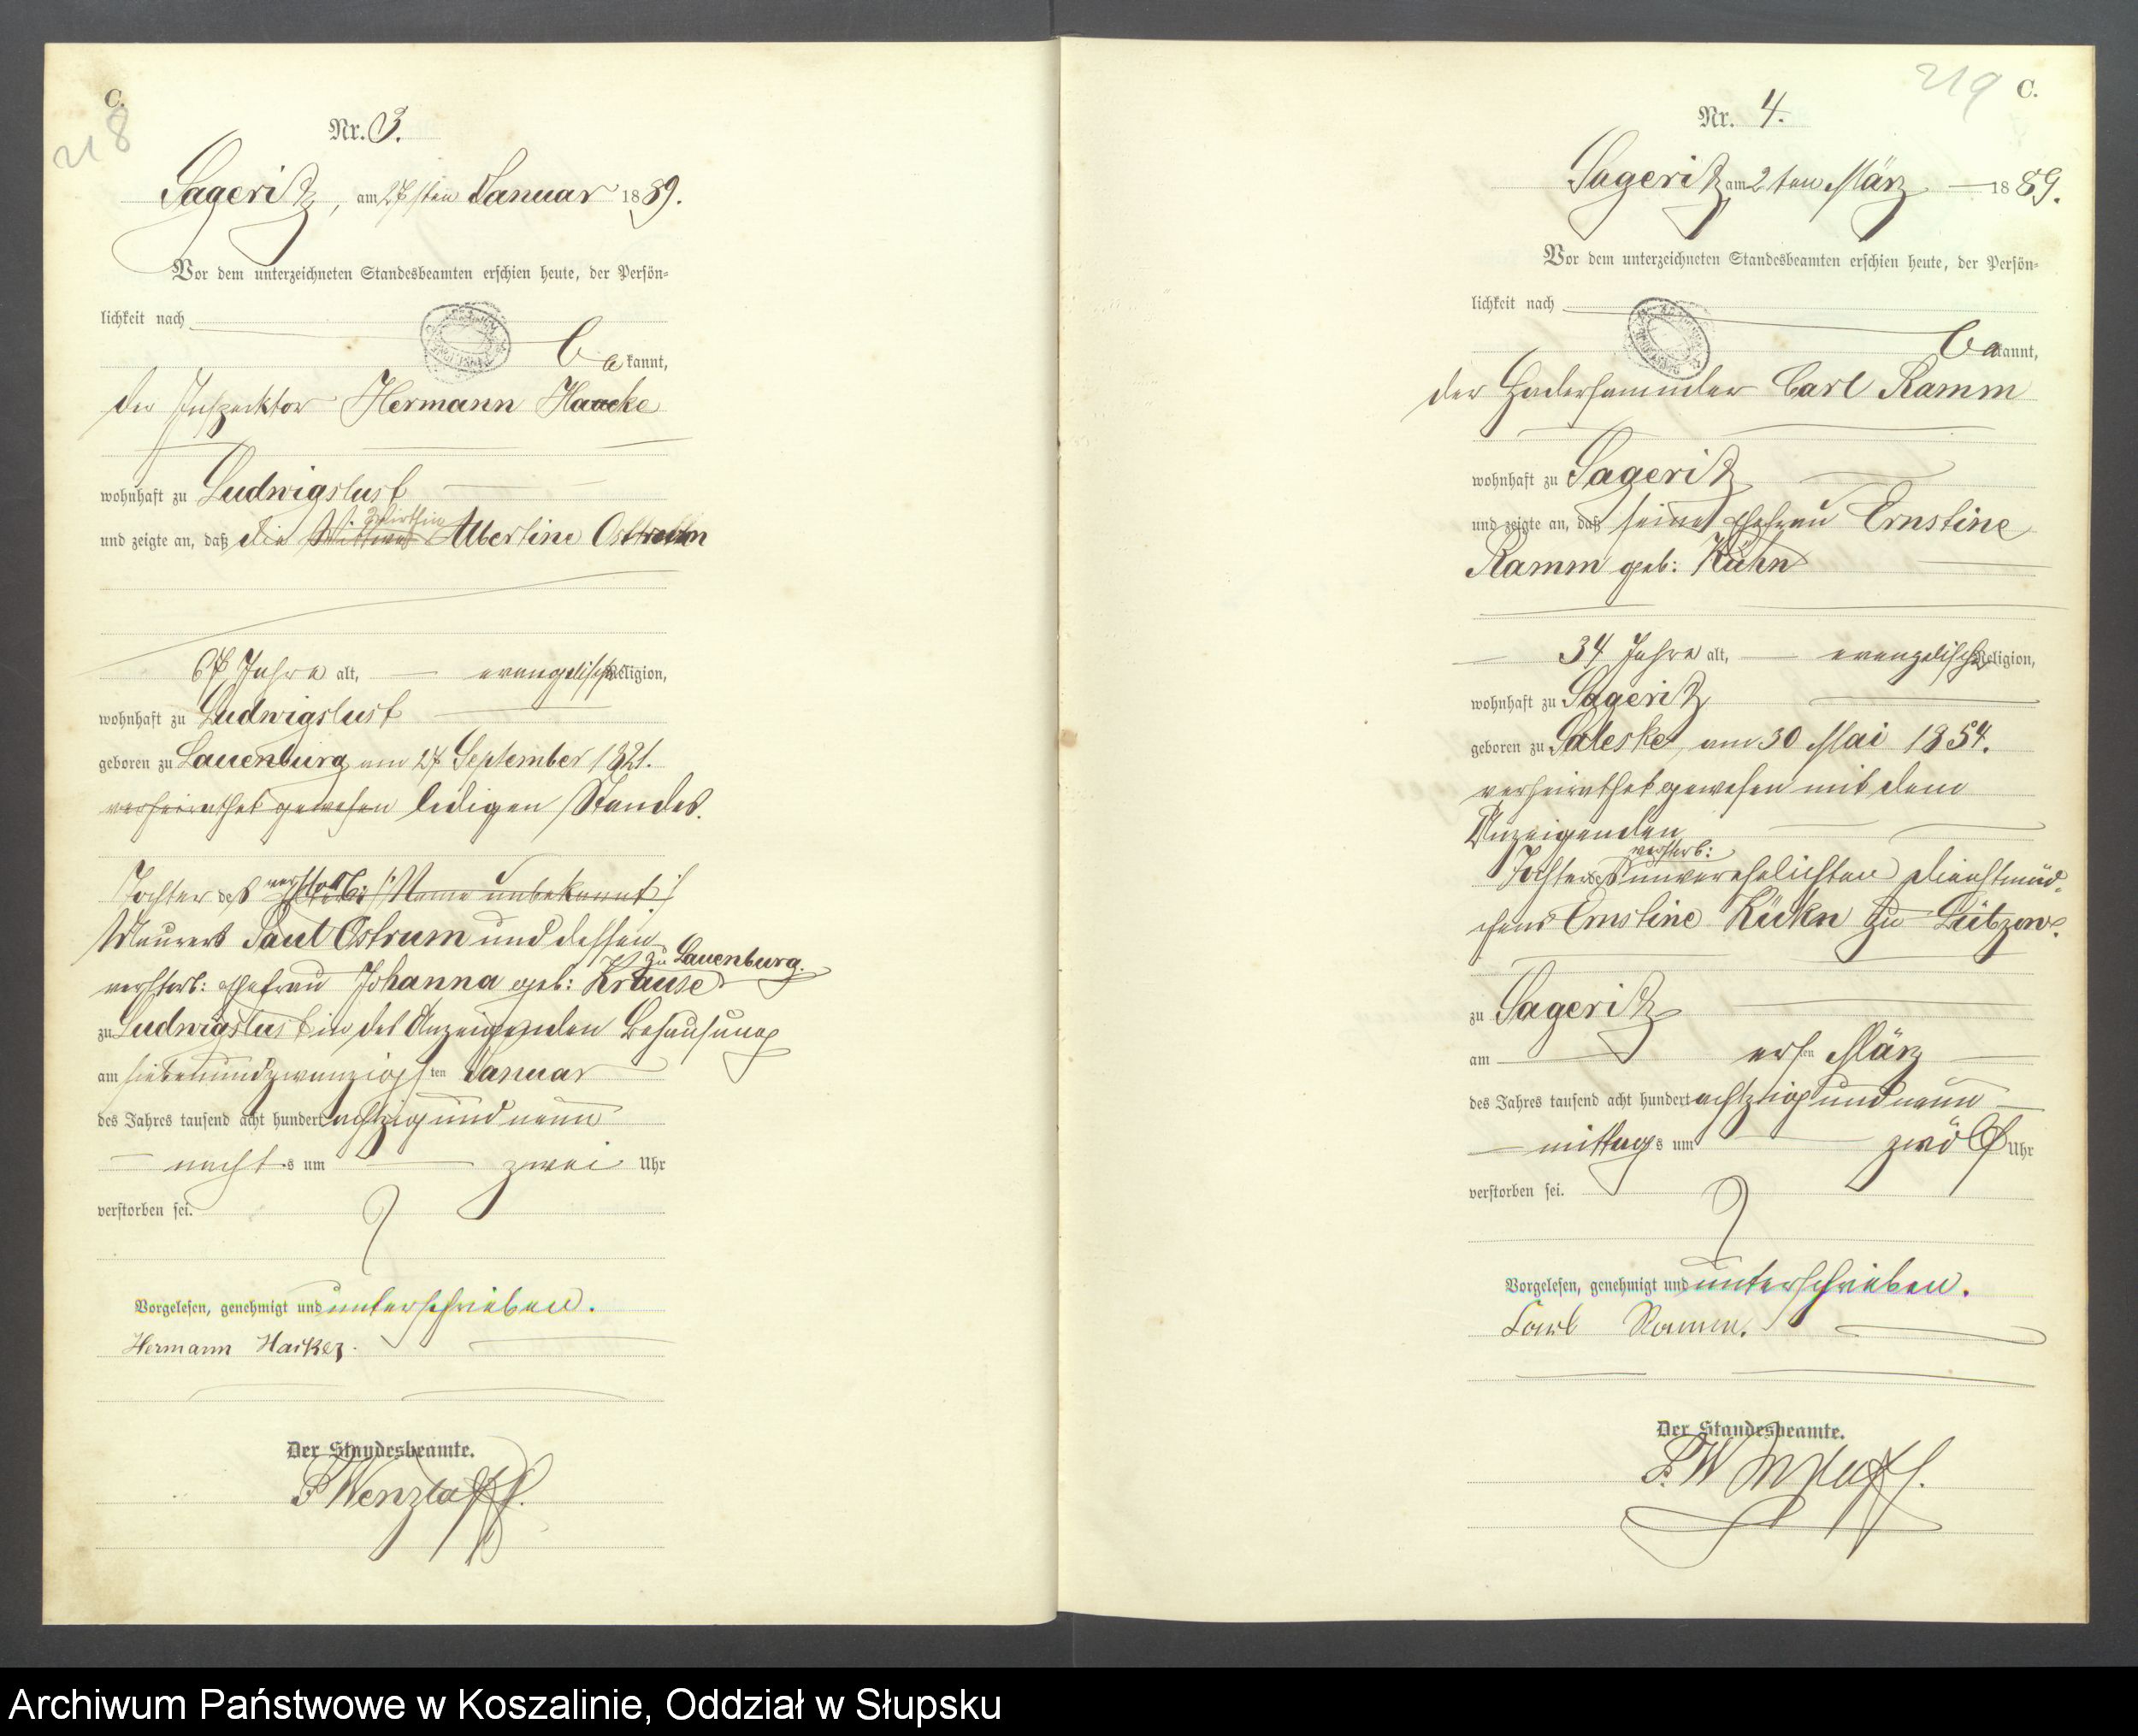 C.
218
Nr. 3.
Sageritz, am 27sten Januar 1889.
Vor dem unterzeichneten Standesbeamten erschien heute, der Persön-
lichkeit nach
be kannt,
der Inspecktor Hermann Haacke
wohnhaft zu Ludwigslust
Wirthin
und zeigte an, daß die Albertine
67 Jahre alt, evangelischer Religion,
wohnhaft zu Ludwigslust
geboren zu Lauenburg am 27 September 1821.
verheirathet gewesen ledigen Standes.
Tochter des verstorb: (: Name unbekannt :)
Maurers Paul Ostrum und dessen
zu Lauenburg.
verstorb: Ehefrau Johanna geb: Krause
zu Ludwigslust in des Anzeigenden Behausung
am siebenundzwanzigsten Januar
des Jahres tausend acht hundert achtzig und neun
nachts um zwei Uhr
verstorben sei.
Vorgelesen, genehmigt und unterschrieben.
Hermann Hacker.
Der Standesbeamte.
F Wenzlaff.
219 C.
Nr. 4.
Sageritz am 2ten März 1889.
Vor dem unterzeichneten Standesbeamten erschien heute, der Persön-
lichkeit nach
be kannt,
der Hadersammler Carl Ramm
wohnhaft zu Sageritz
und zeigte an, daß seine Ehefrau Ernstine
Ramm geb: Kühn
34 Jahre alt, evangelischer Religion,
wohnhaft zu Sageritz
geboren zu Saleske, am 30 Mai 1854.
verheirathet gewesen mit dem
Anzeigenden
verstorb:
Tochter der unverehelichten Dienstmäd-
chens Ernstine zu Lützow.
zu Sageritz
am ersten März
des Jahres tausend acht hundert achtzig und neun
mittags um zwölf Uhr
verstorben sei.
Vorgelesen, genehmigt und unterschrieben.
Carl Ramm.
Der Standesbeamte.
F. Wenzlaff.
Archiwum Państwowe w Koszalinie, Oddział w Słupsku